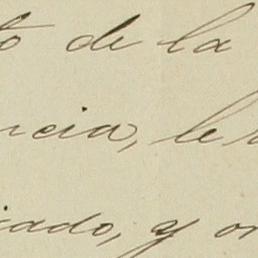 to de la
ncia, le
iado, y